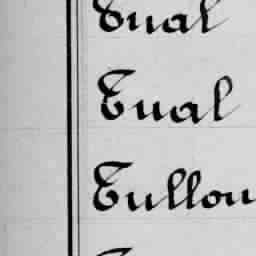 Tual
Tual
Tullou